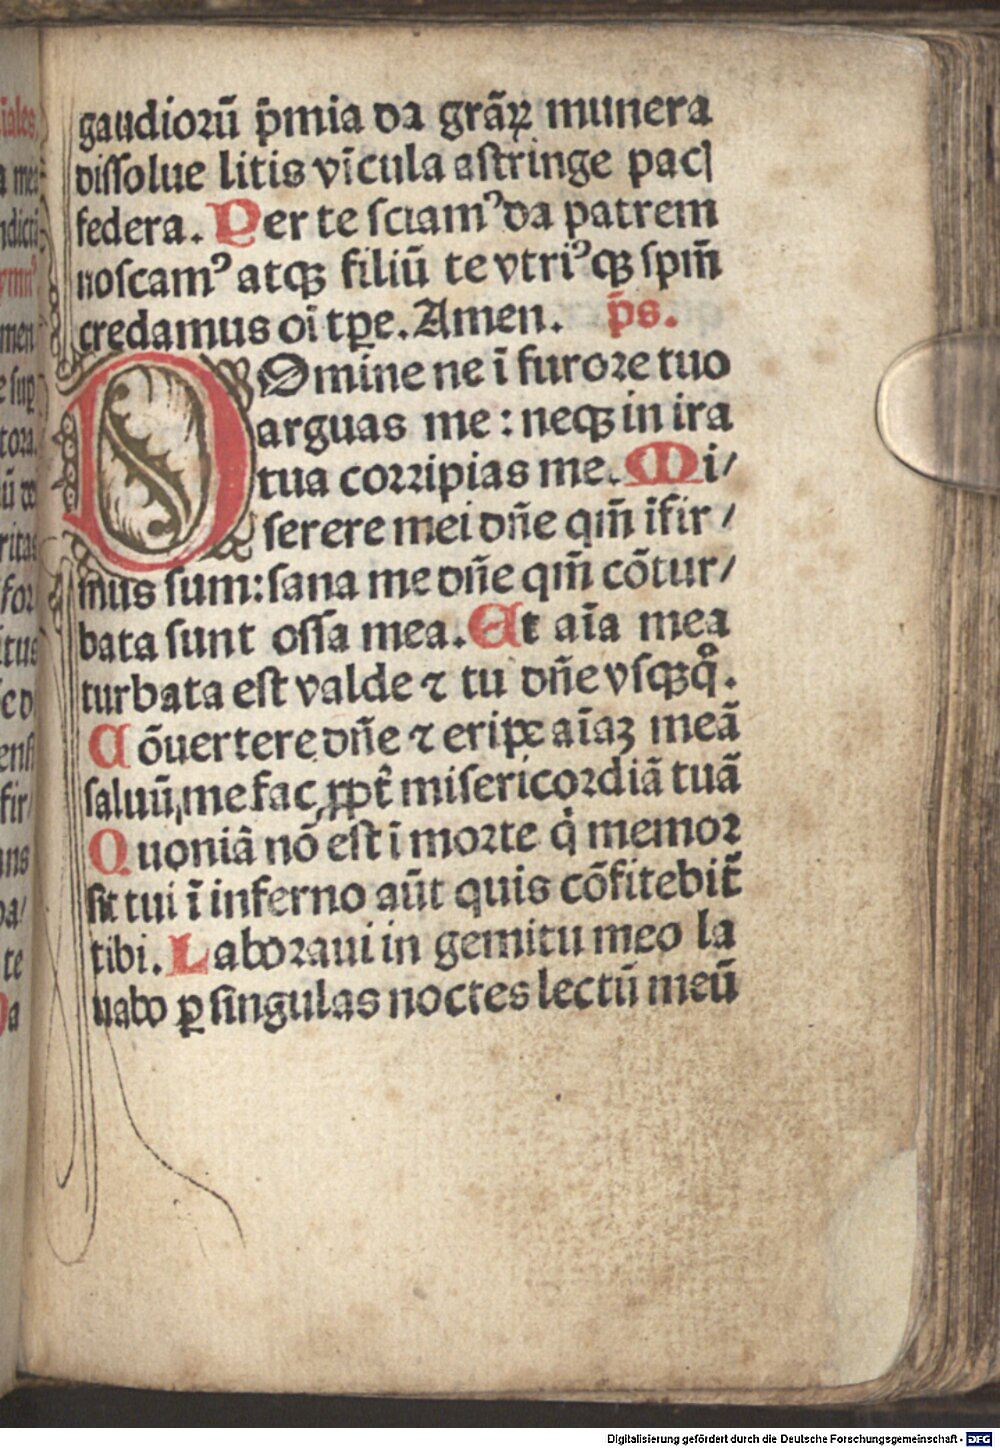 gaudioꝛū p̄mia da grāꝝ munera
diſſolue litis vīcula aſtringe paci
federa. Per te ſciamꝰ da patrem
noſcamꝰ atqꝫ filiū te vtriꝰqꝫ ſpm̄
credamus oī tꝑe. Amen. p̄s.
DOmine ne ī furoꝛe tuo
arguas me : neqꝫ in ira
tua coꝛꝛipias me. Mi/
ſerere mei dn̄e qm̄ īfir/
mus ſum: ſana me dn̄e qm̄ cōtur/
bata ſunt oſſa mea. Et aīa mea
turbata eſt valde ⁊ tu dn̄e vſqꝫqͦ.
Cōuertere dn̄e ⁊ eripe aīaꝫ meā
ſaluū me fac ꝓpt̄ miſericoꝛdiā tuā
Quoniā nō eſt ī moꝛte qͥ memoꝛ
ſit tui ī inferno aūt quis cōfitebit̄
tibi. Laboꝛaui in gemitu meo la
uabo ꝑ ſingulas noctes lectū meū
iales
men
toꝛa.
ritas
foꝛ
itus
fir/
te
Digitalisierung gefördert durch die Deutsche Forschungsgemeinschaft - DFG